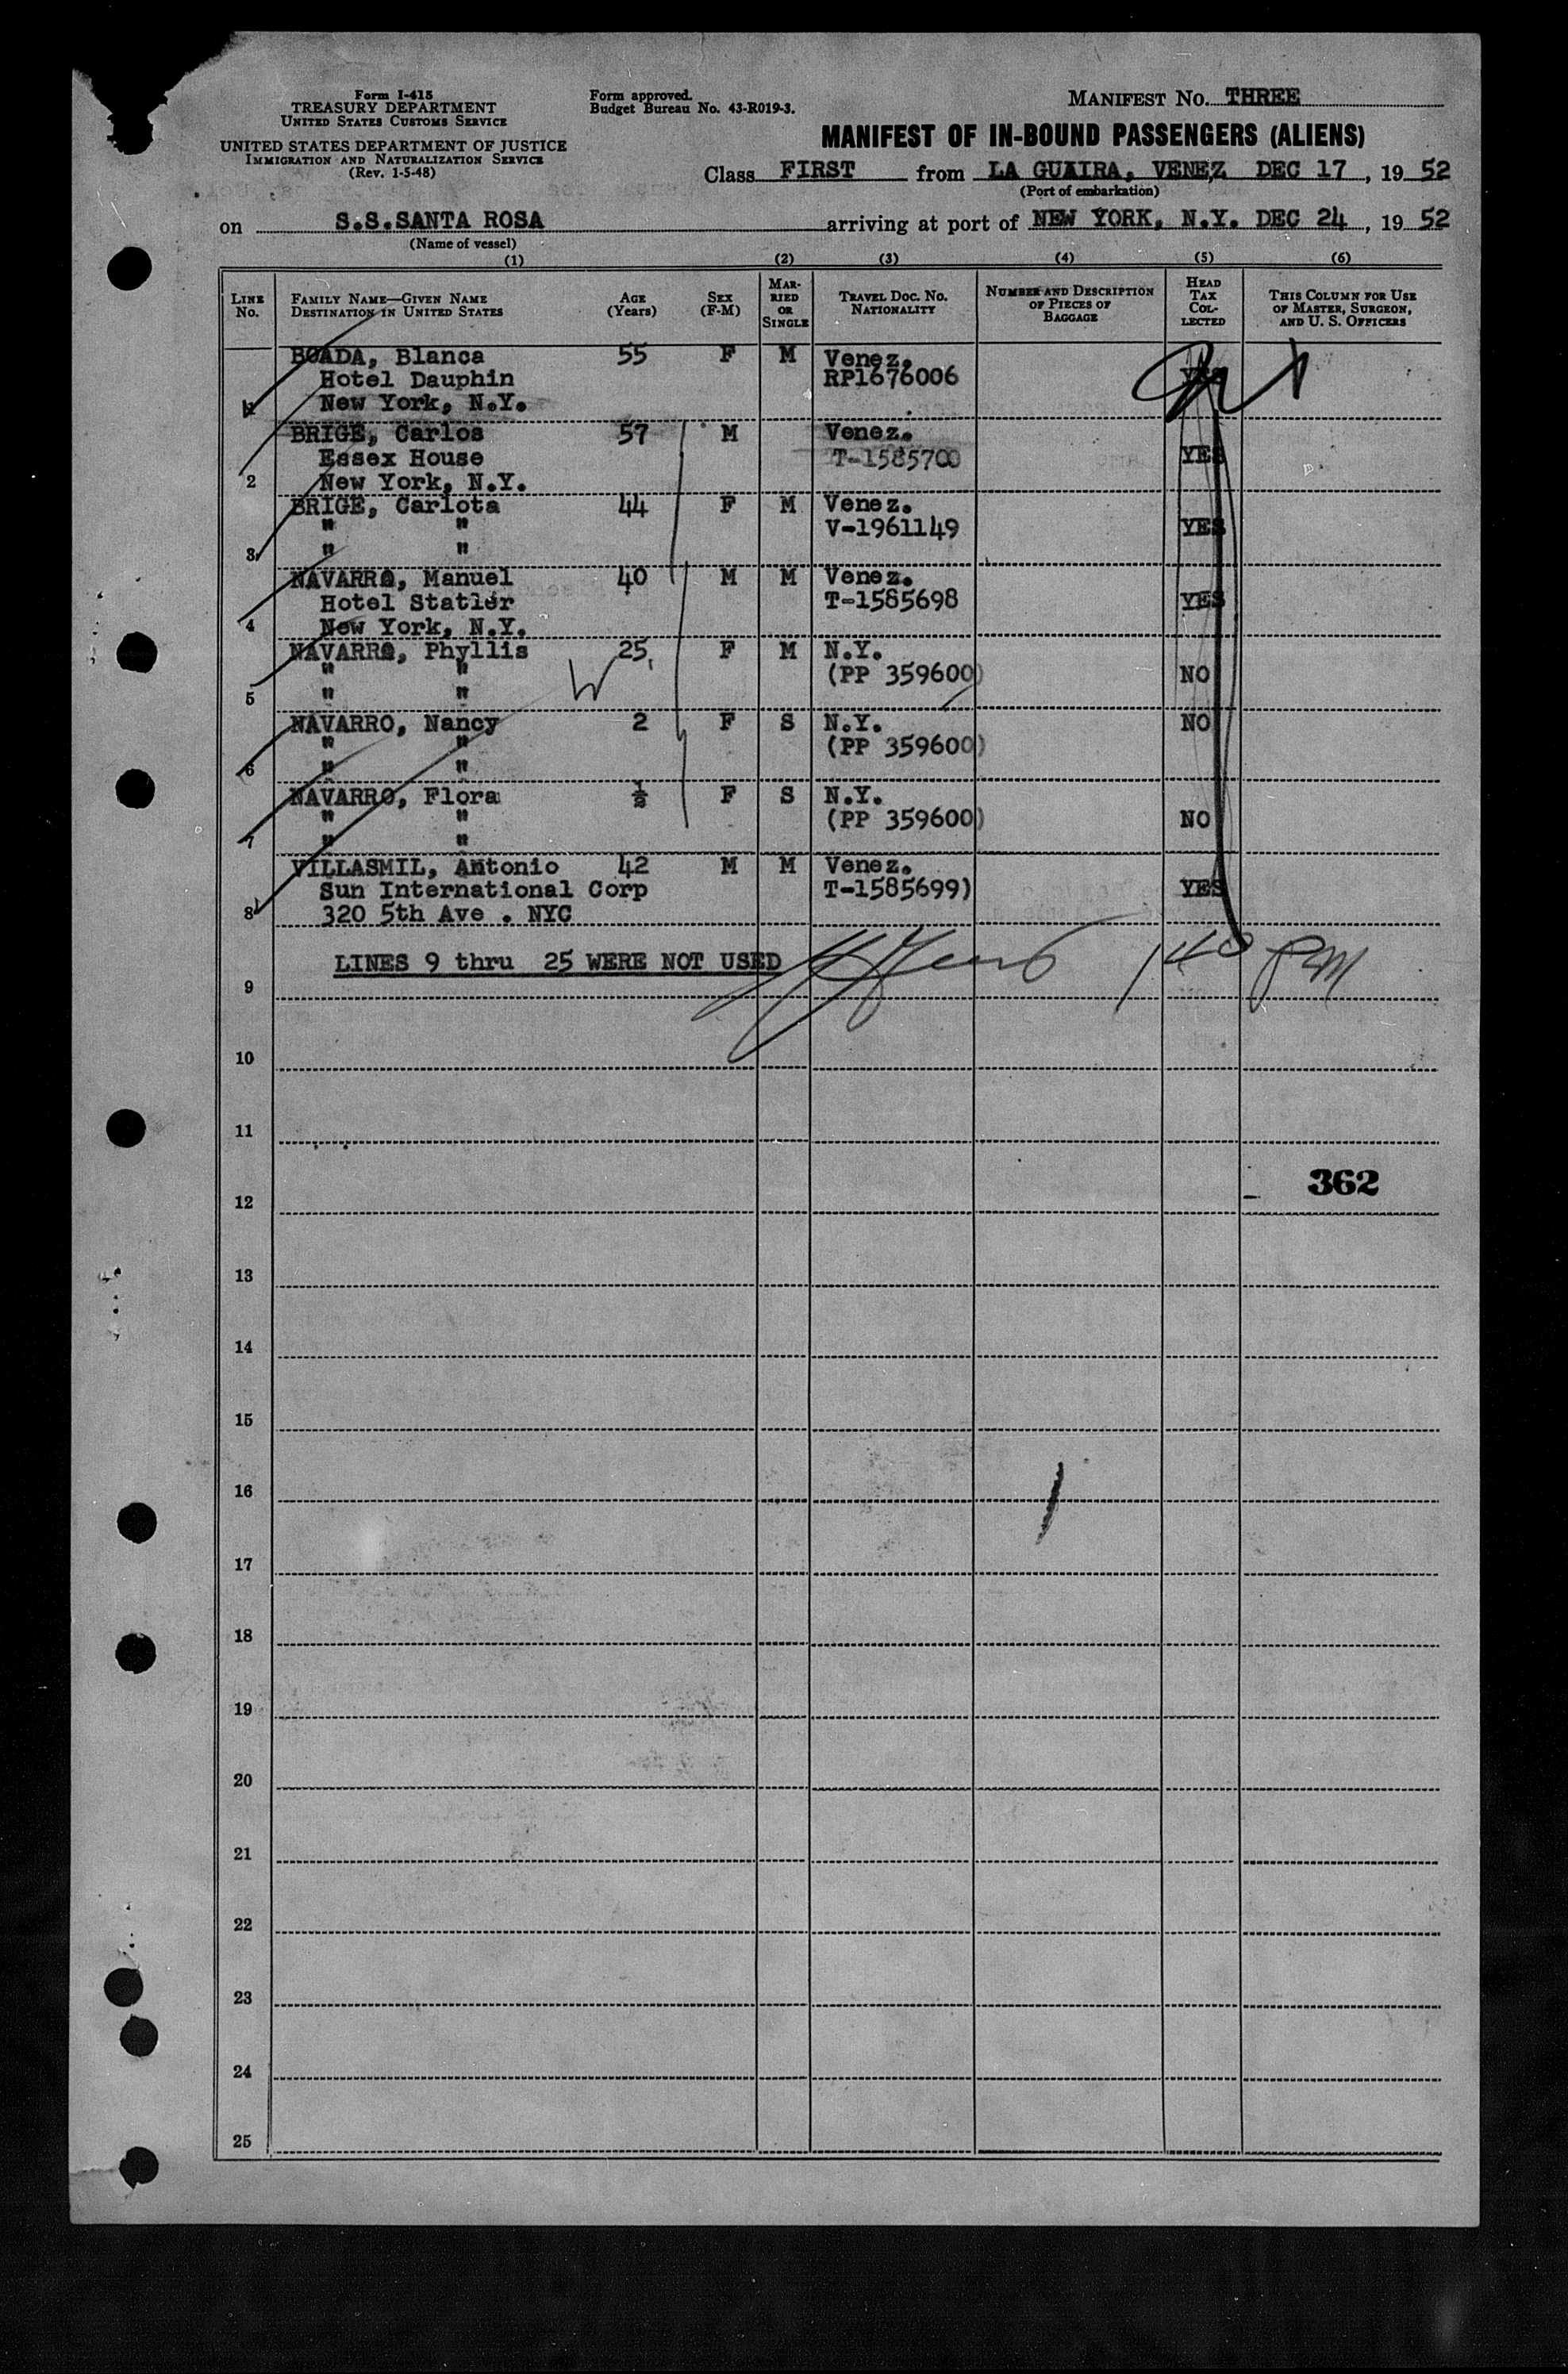 Form I-415
TREASURY DEPARTMENT
UNITED STATES CUSTOMS SERVICE
UNITED STATES DEPARTMENT OF JUSTICE
IMMIGRATION AND NATURALIZATION SERVICE
(Rev. 1-5-48)
Form approved.
Budget Bureau No. 43-R019-3.
MANIFEST NO. THREE
MANIFEST OF IN-BOUND PASSENGERS (ALIENS)
Class FIRST from LA GUAIRA, VENEZ DEC 17, 19 52
(Port of embarkation)
on S.S.SANTA ROSA arriving at port of NEW YORK, N.Y. DEC 24, 19 52
(Name of vessel)
(1) (2) (3) (4) (5) (6)
LINE NO.
FAMILY NAME—GIVEN NAME
DESTINATION IN UNITED STATES
AGE (Years)
SEX (F-M)
MARRIED OR SINGLE
TRAVEL DOC. NO. NATIONALITY
NUMBER AND DESCRIPTION OF PIECES OF BAGGAGE
HEAD TAX COLLECTED
THIS COLUMN FOR USE OF MASTER, SURGEON, AND U. S. OFFICERS
BOADA, Blanca 55 F M Venez.
Hotel Dauphin RP1676006 YES
1 New York, N.Y.
BRIGE, Carlos 57 M Venez.
Essex House T-1585700 YES
2 New York, N.Y.
BRIGE, Carlota 44 F M Venez.
" " V-1961149 YES
3 " "
NAVARRO, Manuel 40 M M Venez.
Hotel Statler T-1585698 YES
4 New York, N.Y.
NAVARRO, Phyllis 25 F M N.Y.
" " W (PP 359600) NO
5 " "
NAVARRO, Nancy 2 F S N.Y. NO
" " (PP 359600)
6 " "
NAVARRO, Flora ½ F S N.Y.
" " (PP 359600) NO
7 " "
VILLASMIL, Antonio 42 M M Venez.
Sun International Corp T-1585699) YES
8 320 5th Ave . NYC
LINES 9 thru 25 WERE NOT USED 140 PM
9
10
11
362
12
13
14
15
16
17
18
19
20
21
22
23
24
25